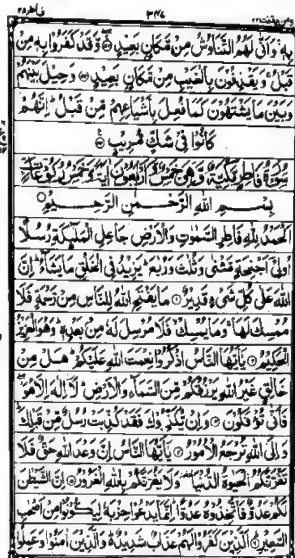 فاطر ۳۵ ۳۴۷ ومن یقنت ۲۲
بِهٖ وَاَنّٰى لَهُمُ التَّنَاوُشُ مِنْ مَّكَانٍ بَعِيْدٍ وَّقَدْ كَفَرُوْا بِهٖ مِنْ
قَبْلُ وَيَقْذِفُوْنَ بِالْغَيْبِ مِنْ مَّكَانٍ بَعِيْدٍ وَحِيْلَ بَيْنَهُمْ
وَبَيْنَ مَا يَشْتَهُوْنَ كَمَا فُعِلَ بِاَشْيَاعِهِمْ مِّنْ قَبْلُ اِنَّهُمْ
كَانُوْا فِيْ شَكٍّ مُّرِيْبٍ
سُوْرَةُ فَاطِرٍ مَّكِّيَّةٌ وَّهِيَ خَمْسٌ وَّاَرْبَعُوْنَ اٰيَةً وَّخَمْسُ رُكُوْعَاتٍ
بِسْمِ اللهِ الرَّحْمٰنِ الرَّحِيْمِ
اَلْحَمْدُ لِلّٰهِ فَاطِرِ السَّمٰوٰتِ وَالْاَرْضِ جَاعِلِ الْمَلٰٓئِكَةِ رُسُلًا
اُولِيْٓ اَجْنِحَةٍ مَّثْنٰى وَثُلٰثَ وَرُبٰعَ يَزِيْدُ فِي الْخَلْقِ مَا يَشَآءُ اِنَّ
اللهَ عَلٰى كُلِّ شَيْءٍ قَدِيْرٌ مَا يَفْتَحِ اللهُ لِلنَّاسِ مِنْ رَّحْمَةٍ فَلَا
مُمْسِكَ لَهَا وَمَا يُمْسِكْ فَلَا مُرْسِلَ لَهٗ مِنْ بَعْدِهٖ وَهُوَ الْعَزِيْزُ
الْحَكِيْمُ يٰٓاَيُّهَا النَّاسُ اذْكُرُوْا نِعْمَتَ اللهِ عَلَيْكُمْ هَلْ مِنْ
خَالِقٍ غَيْرُ اللهِ يَرْزُقُكُمْ مِّنَ السَّمَآءِ وَالْاَرْضِ لَآ اِلٰهَ اِلَّا هُوَ
فَاَنّٰى تُؤْفَكُوْنَ وَاِنْ يُّكَذِّبُوْكَ فَقَدْ كُذِّبَتْ رُسُلٌ مِّنْ قَبْلِكَ
وَاِلَى اللهِ تُرْجَعُ الْاُمُوْرُ يٰٓاَيُّهَا النَّاسُ اِنَّ وَعْدَ اللهِ حَقٌّ فَلَا
تَغُرَّنَّكُمُ الْحَيٰوةُ الدُّنْيَا وَلَا يَغُرَّنَّكُمْ بِاللهِ الْغَرُوْرُ اِنَّ الشَّيْطٰنَ
لَكُمْ عَدُوٌّ فَاتَّخِذُوْهُ عَدُوًّا اِنَّمَا يَدْعُوْا حِزْبَهٗ لِيَكُوْنُوْا مِنْ اَصْحٰبِ
السَّعِيْرِ اَلَّذِيْنَ كَفَرُوْا لَهُمْ عَذَابٌ شَدِيْدٌ وَالَّذِيْنَ اٰمَنُوْا وَعَمِلُوا